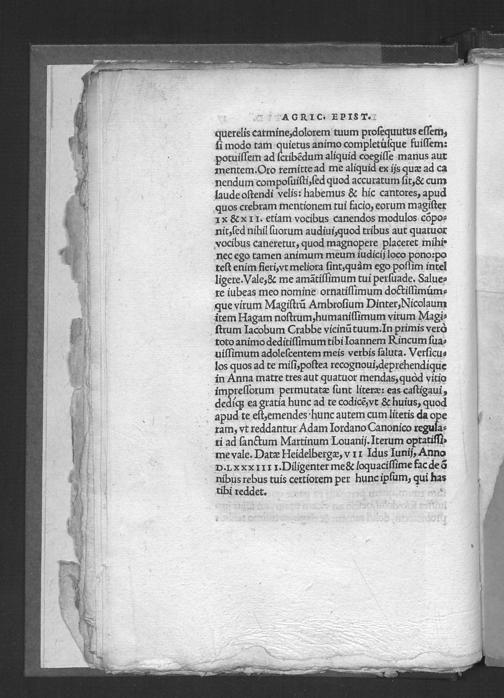 AGRIC. EPIST.
querelis carmine,dolorem tuum proſequutus eſſem,
ſi modo tam quietus animo completúſque fuiſſem:
potuiſſem ad ſcribēdum aliquid coegiſſe manus aut
mentem.Oro remitte ad me aliquid ex ijs quæ ad ca
nendum compoſuiſti,ſed quod accuratum ſit,& cum
laude oſtendi velis: habemus & hic cantores, apud
quos crebram mentionem tui facio, eorum magiſter
IX & XII. etiam vocibus canendos modulos cōpo-
nit,ſed nihil ſuorum audiui,quod tribus aut quatuor
vocibus caneretur, quod magnopere placeret mihi-
nec ego tamen animum meum iudicij loco pono:po
teſt enim fieri,vt meliora ſint,quàm ego poſſim intel
ligere.Vale,& me amātiſſimum tui perſuade. Salue-
re iubeas meo nomine ornatiſſimum doctiſſimúm-
que virum Magiſtrū Ambroſium Dinter,Nicolaum
item Hagam noſtrum,humaniſſimum virum Magi-
ſtrum Iacobum Crabbe vicinū tuum.In primis verò
toto animo deditiſſimum tibi Ioannem Rincum ſua-
uiſſimum adoleſcentem meis verbis ſaluta. Verſicu-
los quos ad te miſi,poſtea recognoui,deprehendique
in Anna matre tres aut quatuor mendas,quòd vitio
impreſſorum permutatæ ſunt literæ: eas caſtigaui,
dediq; ea gratia hunc ad te codicē,vt & huius, quod
apud te eſt,emendes hunc autem cum literis da ope
ram, vt reddantur Adam Iordano Canonico regula-
ri ad ſanctum Martinum Louanij. Iterum optatiſſi-
me vale. Datæ Heidelbergæ, VII Idus Iunij, Anno
D.LXXXIIII.Diligenter me & loquaciſſime fac de ō
nibus rebus tuis certiorem per hunc ipſum, qui has
tibi reddet.